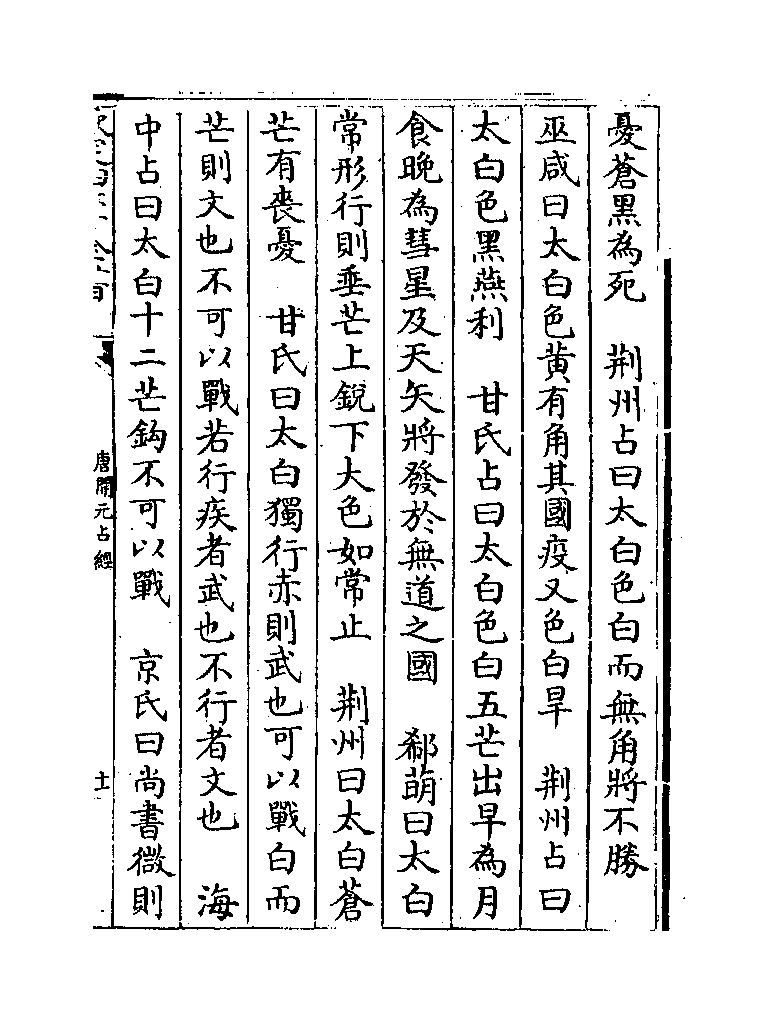 憂蒼黑為死　荆州占曰太白色白而無角將不勝
巫咸曰太白色黄有角其國疫又色白旱　荆州占曰
太白色黑燕利　甘氏占曰太白色白五芒出早為月
食晚為彗星及天矢將發於無道之國　郗萌曰太白
常形行則垂芒上銳下大色如常止　荆州曰太白蒼
芒有喪憂　甘氏曰太白獨行赤則武也可以戰白而
芒則文也不可以戰若行疾者武也不行者文也　海
中占曰太白十二芒鈎不可以戰　京氏曰尚書微則
唐開元占經